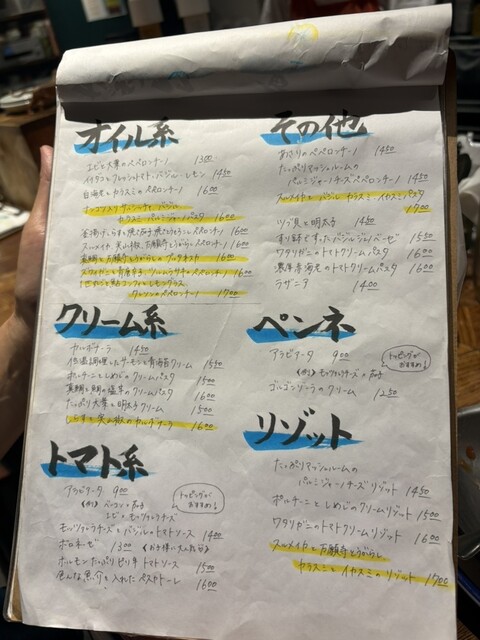 オイル系
エビと大葉のペペロンチーノ 1300
イイダコとフレッシュトマト、バジル、レモン 1450
白海老とカラスミのペペロンチーノ 1600
カラスミ パルミジャーノパスタ 1600
釜揚げしらすと 1600
スルメイカ、実山椒、万願寺とうがらしのペペロンチーノ 1600
真鯛と万願寺とうがらしの 1600
1600
ペペロンチーノ 1700
クリーム系
カルボナーラ 1450
低温調理したサーモンと青海苔クリーム 1550
ポルチーニとしめじのクリームパスタ 1500
真鯛と鯛の塩辛のクリームパスタ 1600
たっぷり大葉と明太子クリーム 1500
しらすと実山椒のカルボナーラ 1600
トマト系
アラビアータ 900
(例) ベーコンとなす
エビとモッツァレラチーズ
トッピングがおすすめ!
モッツァレラチーズとバジルのトマトソース 1400
ボロネーゼ 1300 (お子様に大人気)
ホルモンたっぷりピリ辛トマトソース 1500
色んな魚介を入れたペスカトーレ 1600
その他
あさりのペペロンチーノ 1450
たっぷりマッシュルームの
パルミジャーノチーズペペロンチーノ 1450
スルメイカと バジル カラスミ イカスミパスタ 1700
ツブ貝と明太子 1450
すりおろす、たっぷりバジルジェノベーゼ 1550
ワタリガニのトマトクリームパスタ 1600
濃厚赤海老のトマトクリームパスタ 1600
ラザニア 1400
ペンネ
アラビアータ 900
トッピングがおすすめ!
(例) モッツァレラチーズ+なす
ゴルゴンゾーラのクリーム 1250
リゾット
たっぷりマッシュルームの
パルミジャーノチーズリゾット 1450
ポルチーニとしめじのクリームリゾット 1500
ワタリガニのトマトクリームリゾット 1600
スルメイカと万願寺とうがらし
カラスミとイカスミのリゾット 1700